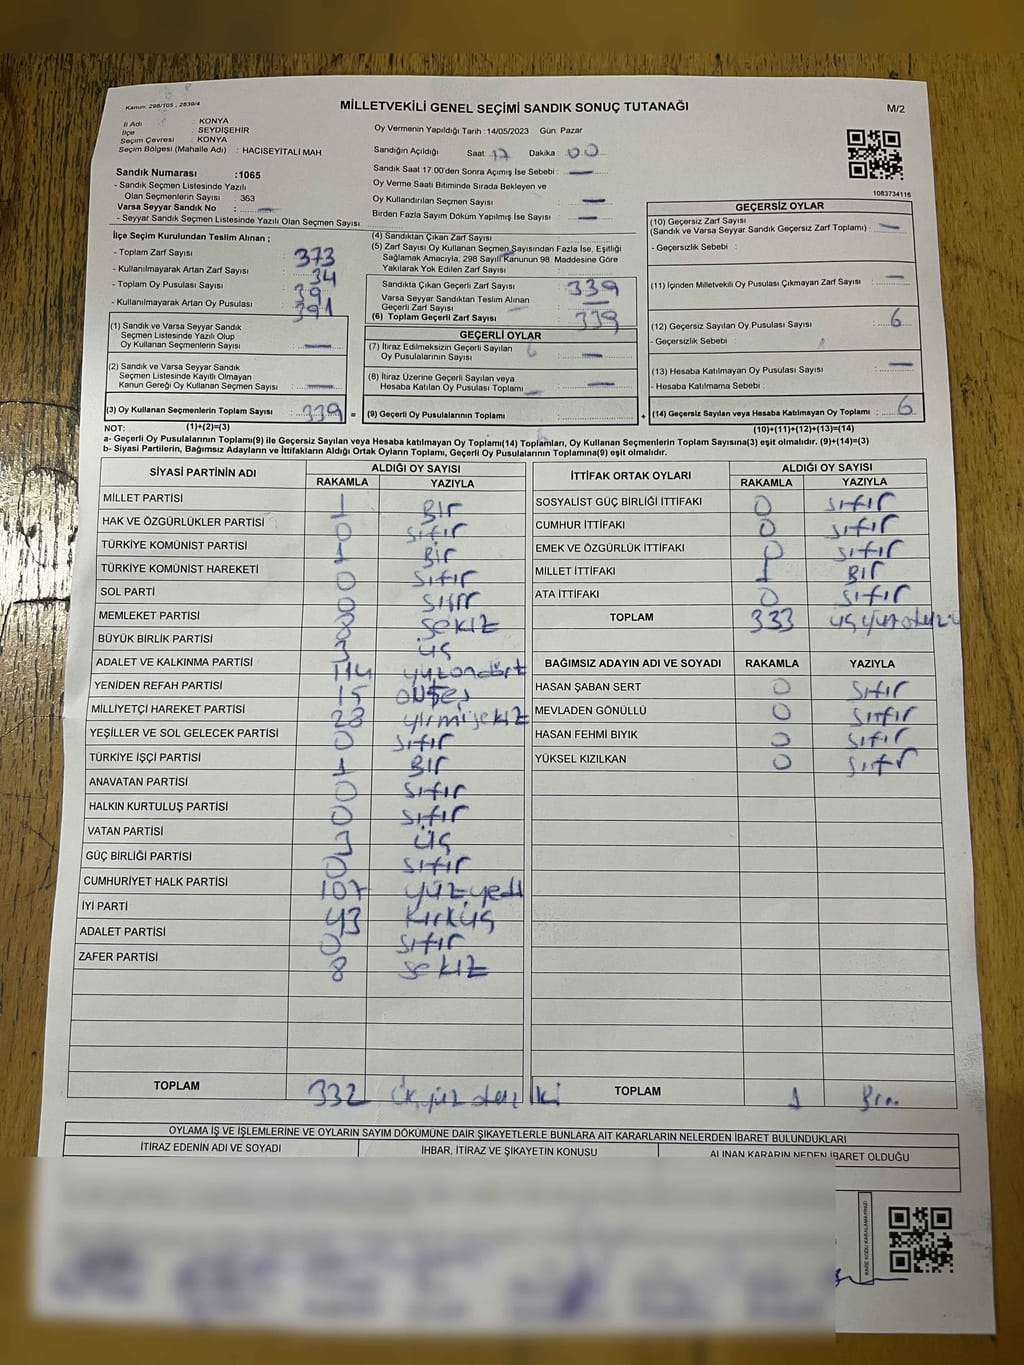 Kanun: 298/105 , 2839/4
MİLLETVEKİLİ GENEL SEÇİMİ SANDIK SONUÇ TUTANAĞI
M/2
İl Adı : KONYA
İlçe : SEYDİŞEHİR
Seçim Çevresi : KONYA
Seçim Bölgesi (Mahalle Adı) : HACISEYİTALİ MAH.
Oy Vermenin Yapıldığı Tarih :14/05/2023 Gün: Pazar
Sandığın Açıldığı Saat: 17 Dakika : 00
Sandık Saat 17.00'den Sonra Açılmış İse Sebebi : —
Oy Verme Saati Bitiminde Sırada Bekleyen ve
Oy Kullandırılan Seçmen Sayısı : —
Birden Fazla Sayım Döküm Yapılmış İse Sayısı : —
1083734116
Sandık Numarası :1065
- Sandık Seçmen Listesinde Yazılı
Olan Seçmenlerin Sayısı : 363
Varsa Seyyar Sandık No : —
- Seyyar Sandık Seçmen Listesinde Yazılı Olan Seçmen Sayısı
İlçe Seçim Kurulundan Teslim Alınan ;
- Toplam Zarf Sayısı : 373
- Kullanılmayarak Artan Zarf Sayısı : 34
- Toplam Oy Pusulası Sayısı :
- Kullanılmayarak Artan Oy Pusulası : 391
(1) Sandık ve Varsa Seyyar Sandık
Seçmen Listesinde Yazılı Olup
Oy Kullanan Seçmenlerin Sayısı : —
(2) Sandık ve Varsa Seyyar Sandık
Seçmen Listesinde Kayıtlı Olmayan
Kanun Gereği Oy Kullanan Seçmen Sayısı : —
(3) Oy Kullanan Seçmenlerin Toplam Sayısı : 339 =
(4) Sandıktan Çıkan Zarf Sayısı :
(5) Zarf Sayısı Oy Kullanan Seçmen Sayısından Fazla İse, Eşitliği
Sağlamak Amacıyla, 298 Sayılı Kanunun 98. Maddesine Göre
Yakılarak Yok Edilen Zarf Sayısı :
Sandıkta Çıkan Geçerli Zarf Sayısı : 339
Varsa Seyyar Sandıktan Teslim Alınan
Geçerli Zarf Sayısı : —
(6) Toplam Geçerli Zarf Sayısı : 339
GEÇERLİ OYLAR
(7) İtiraz Edilmeksizin Geçerli Sayılan
Oy Pusulalarının Sayısı : —
(8) İtiraz Üzerine Geçerli Sayılan veya
Hesaba Katılan Oy Pusulası Toplamı : —
(9) Geçerli Oy Pusulalarının Toplamı : +
GEÇERSİZ OYLAR
(10) Geçersiz Zarf Sayısı
(Sandık ve Varsa Seyyar Sandık Geçersiz Zarf Toplamı) : —
- Geçersizlik Sebebi :
(11) İçinden Milletvekili Oy Pusulası Çıkmayan Zarf Sayısı : —
(12) Geçersiz Sayılan Oy Pusulası Sayısı : 6
- Geçersizlik Sebebi :
(13) Hesaba Katılmayan Oy Pusulası Sayısı : —
- Hesaba Katılmama Sebebi :
(14) Geçersiz Sayılan veya Hesaba Katılmayan Oy Toplamı : 6
NOT: (1)+(2)=(3)
(10)+(11)+(12)+(13)=(14)
a- Geçerli Oy Pusulalarının Toplamı(9) ile Geçersiz Sayılan veya Hesaba katılmayan Oy Toplamı(14) Toplamları, Oy Kullanan Seçmenlerin Toplam Sayısına(3) eşit olmalıdır. (9)+(14)=(3)
b- Siyasi Partilerin, Bağımsız Adayların ve İttifakların Aldığı Ortak Oyların Toplamı, Geçerli Oy Pusulalarının Toplamına(9) eşit olmalıdır.
SİYASİ PARTİNİN ADI ALDIĞI OY SAYISI
RAKAMLA YAZIYLA
MİLLET PARTİSİ 1 Bir
HAK VE ÖZGÜRLÜKLER PARTİSİ 0 sıfır
TÜRKİYE KOMÜNİST PARTİSİ 1 Bir
TÜRKİYE KOMÜNİST HAREKETİ 0 sıfır
SOL PARTİ 0 sıfır
MEMLEKET PARTİSİ 8 sekiz
BÜYÜK BİRLİK PARTİSİ 3 üç
ADALET VE KALKINMA PARTİSİ 114 yüzondört
YENİDEN REFAH PARTİSİ 15 onbeş
MİLLİYETÇİ HAREKET PARTİSİ 28 yirmisekiz
YEŞİLLER VE SOL GELECEK PARTİSİ 0 sıfır
TÜRKİYE İŞÇİ PARTİSİ 1 Bir
ANAVATAN PARTİSİ 0 sıfır
HALKIN KURTULUŞ PARTİSİ 0 sıfır
VATAN PARTİSİ 3 üç
GÜÇ BİRLİĞİ PARTİSİ 0 sıfır
CUMHURİYET HALK PARTİSİ 107 yüzyedi
İYİ PARTİ 43 kırküç
ADALET PARTİSİ 0 sıfır
ZAFER PARTİSİ 8 sekiz
TOPLAM 332
İTTİFAK ORTAK OYLARI ALDIĞI OY SAYISI
RAKAMLA YAZIYLA
SOSYALİST GÜÇ BİRLİĞİ İTTİFAKI 0 sıfır
CUMHUR İTTİFAKI 0 sıfır
EMEK VE ÖZGÜRLÜK İTTİFAKI 0 sıfır
MİLLET İTTİFAKI 1 Bir
ATA İTTİFAKI 0 sıfır
TOPLAM 333
BAĞIMSIZ ADAYIN ADI VE SOYADI RAKAMLA YAZIYLA
HASAN ŞABAN SERT 0 sıfır
MEVLADEN GÖNÜLLÜ 0 sıfır
HASAN FEHMİ BIYIK 0 sıfır
YÜKSEL KIZILKAN 0 sıfır
TOPLAM 1 Bir
OYLAMA İŞ VE İŞLEMLERİNE VE OYLARIN SAYIM DÖKÜMÜNE DAİR ŞİKAYETLERLE BUNLARA AİT KARARLARIN NELERDEN İBARET BULUNDUKLARI
İTİRAZ EDENİN ADI VE SOYADI İHBAR, İTİRAZ VE ŞİKAYETİN KONUSU ALINAN KARARIN NEDEN İBARET OLDUĞU